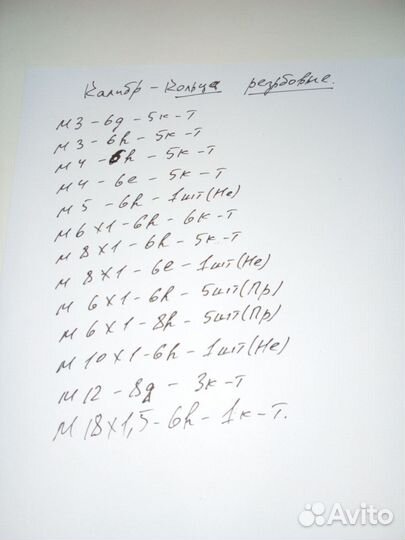 Калибр - Кольца резьбовые.
м3 - 6g - 5к-т
м3 - 6h - 5к-т
м4 - 6h - 5к-т
м4 - 6е - 5к-т
м5 - 6h - 1шт(Не)
м6х1 - 6h - 6к-т
м8х1 - 6h - 5к-т
м 8х1 - 6е - 1шт(Не)
м 6х1 - 6h - 5шт(Пр)
м 6х1 - 8h - 5шт(Пр)
м 10х1 - 6h - 1шт(Не)
м12 - 8g - 3к-т
м 18х1,5 - 6h - 1к-т.
Avito